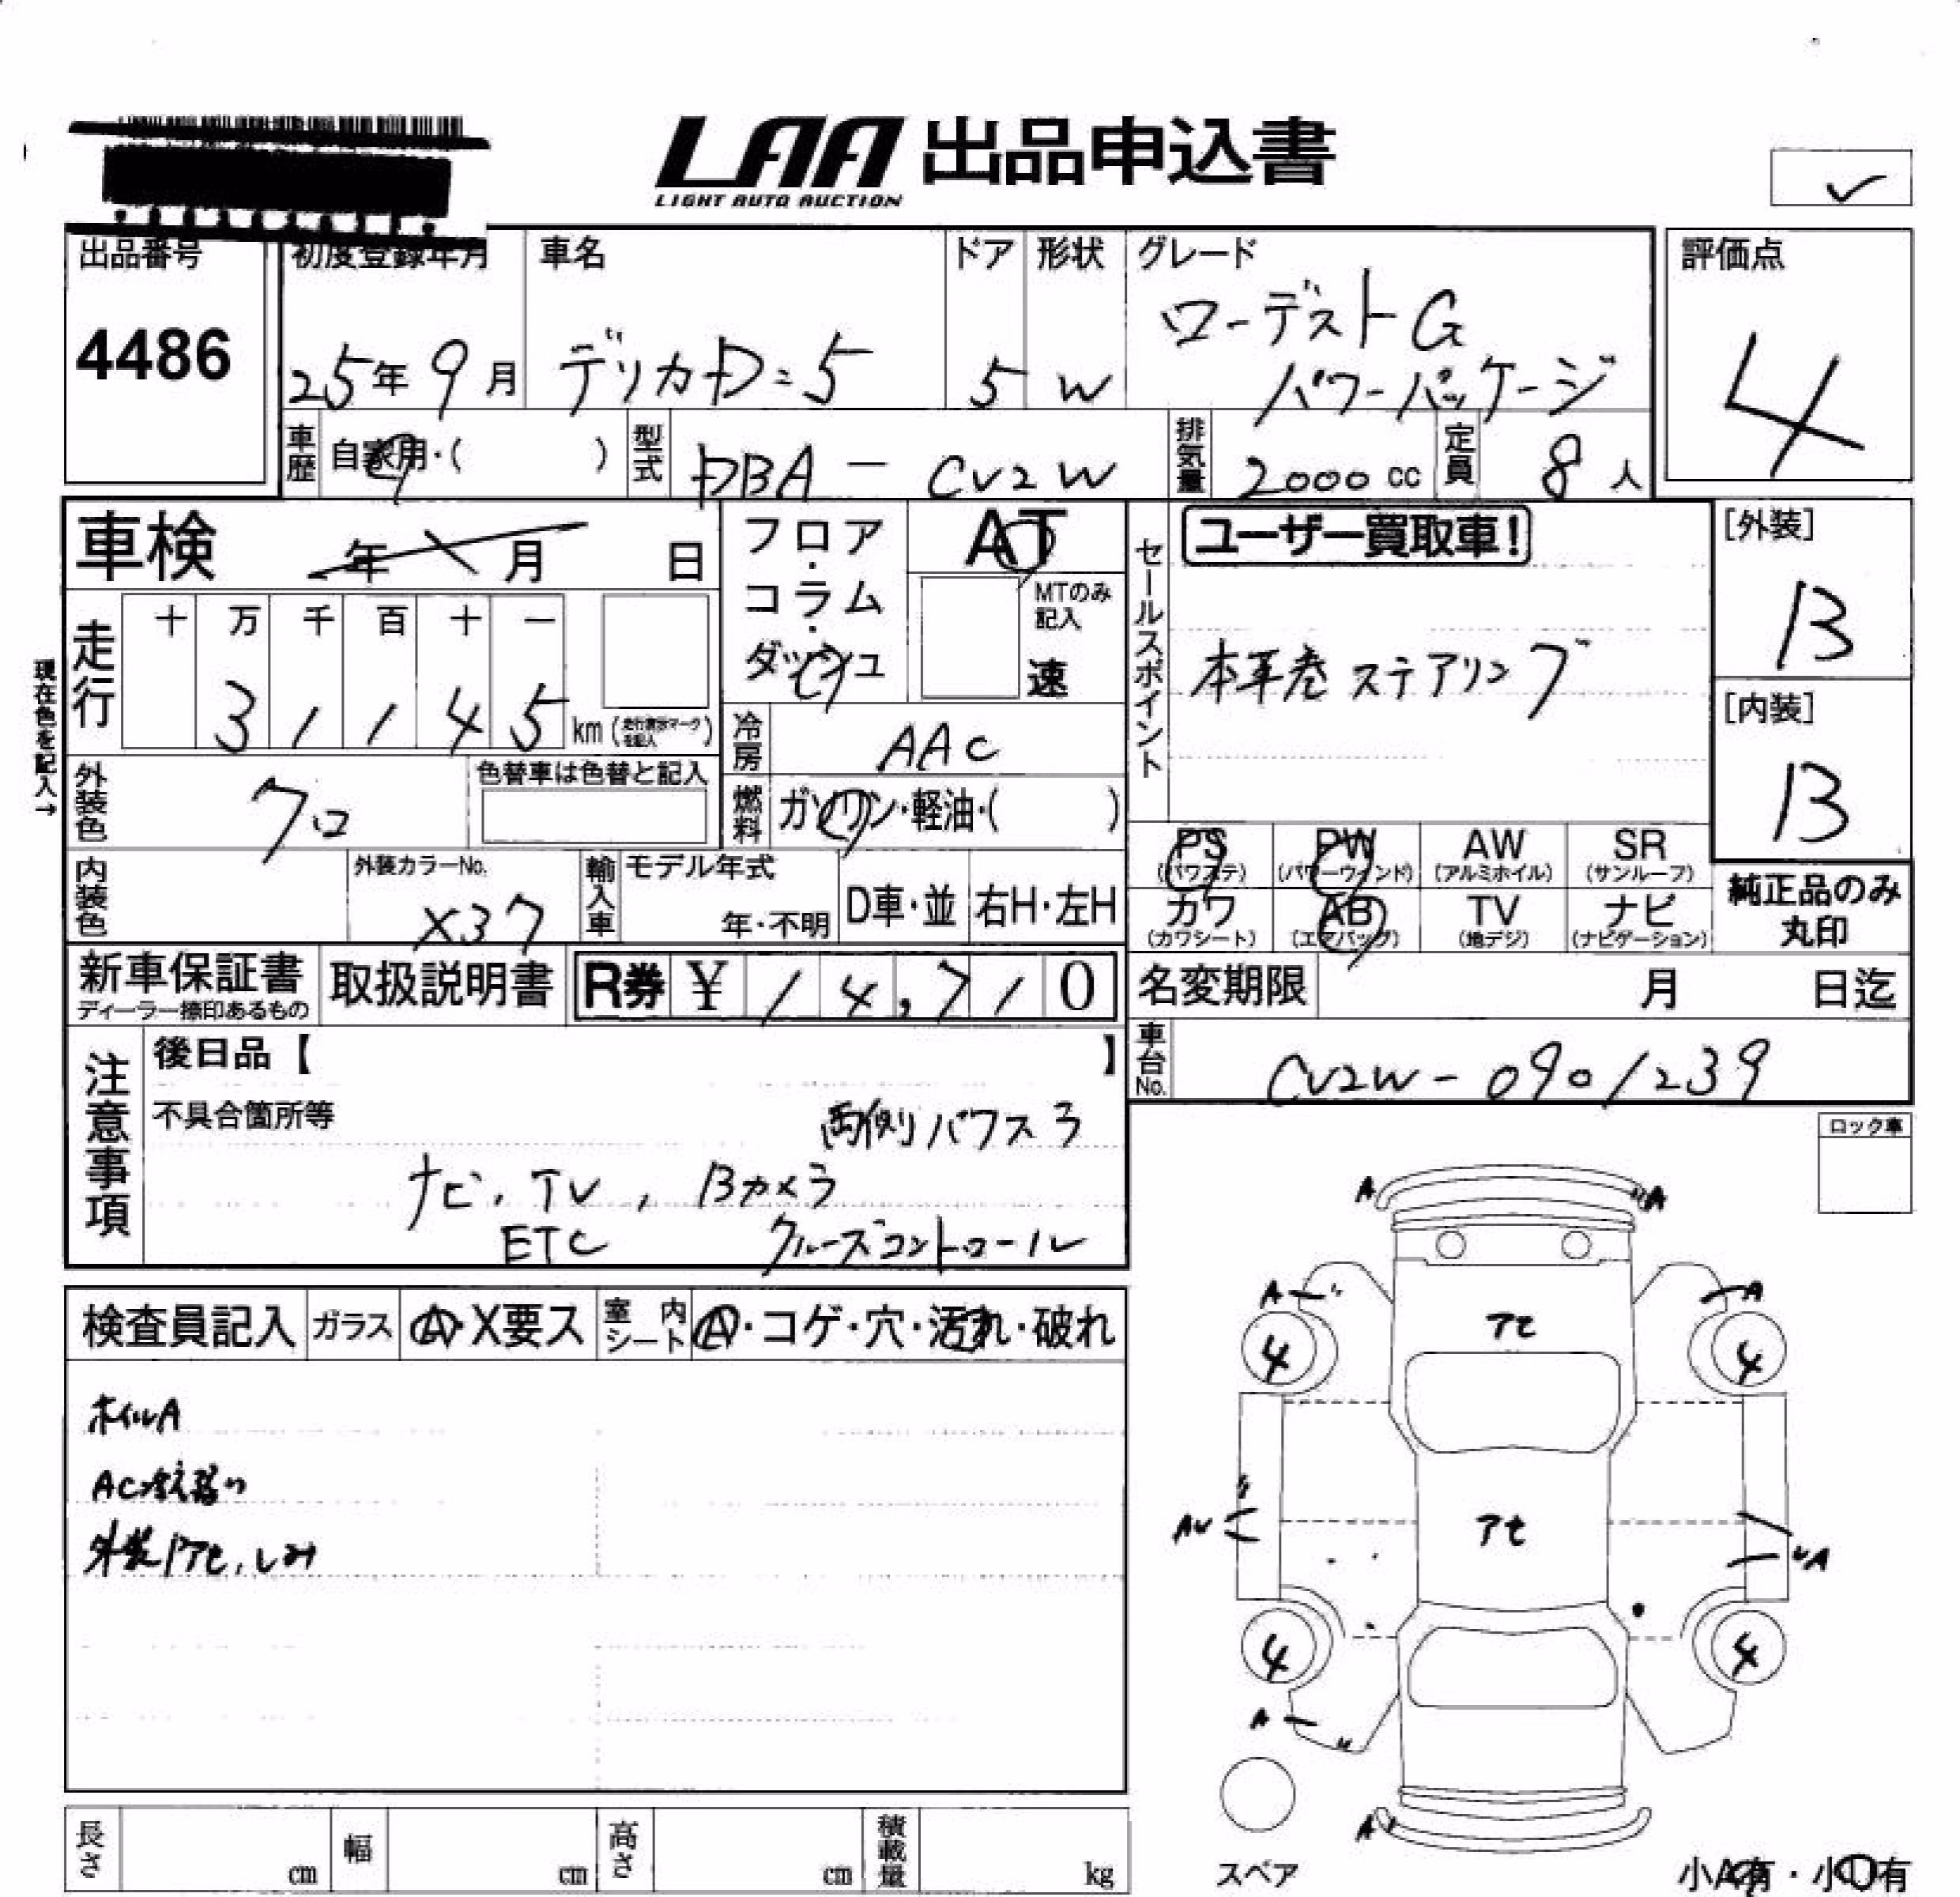 LAA 出品申込書
LIGHT AUTO AUCTION
✓
出品番号
4486
初度登録年月
25年 9月
車名
デリカD:5
ドア
5
形状
W
グレード
ローデスト G
パワーパッケージ
評価点
4
車歴
自家用・( )
型式
DBA - CV2W
排気量
2000 cc
定員
8 人
車検
年 月 日
フロア・コラム・ダッシュ
AT
MTのみ記入
速
セールスポイント
ユーザー買取車!
本革巻ステアリング
[外装]
B
[内装]
B
現在色を記入→
走行
十 万 千 百 十 一
3 1 1 4 5 km (走行表示マークを記入)
冷房
AAC
外装色
クロ
色替車は色替と記入
燃料
ガソリン・軽油・( )
PS (パワステ) PW (パワーウィンド) AW (アルミホイル) SR (サンルーフ)
カワ (カワシート) AB (エアバッグ) TV (地デジ) ナビ (ナビゲーション)
純正品のみ
丸印
内装色
外装カラーNo.
X37
輸入車
モデル年式
年・不明
D車・並
右H・左H
新車保証書
ディーラー捺印あるもの
取扱説明書
R券 ¥ 14,710
名変期限 月 日迄
車台No.
CV2W - 0901239
注意事項
後日品【 】
不具合箇所等
両側パワスラ
ナビ, TV, Bカメラ
ETC クルーズコントロール
ロック車
検査員記入
ガラス
A・X要ス
室内シート
A・コゲ・穴・汚れ・破れ
ホイルA
外装アセ,シミ
A A
A A
アセ
4 4
アセ
AU UA
4 4
A
A
スペア
小A有・小U有
長さ cm
幅 cm
高さ cm
積載量 kg